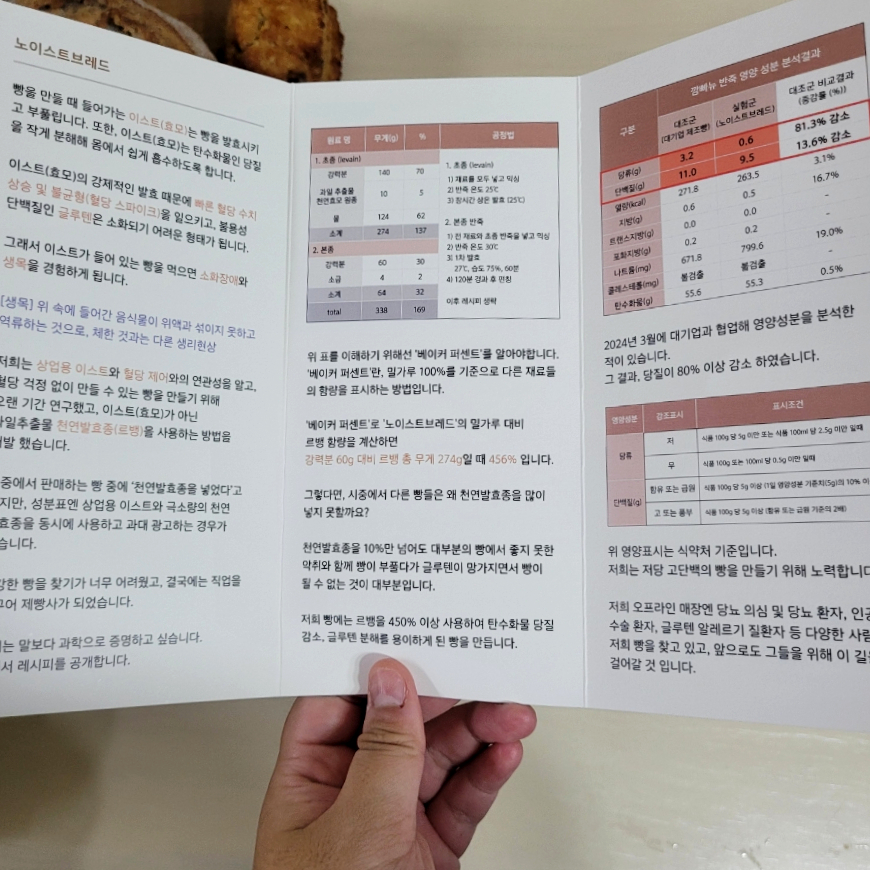 노이스트브레드
빵을 만들 때 들어가는 이스트(효모)는 빵을 발효시키
고 부풀립니다. 또한, 이스트(효모)는 탄수화물인 당질
을 작게 분해해 몸에서 쉽게 흡수하도록 합니다.
이스트(효모)의 강제적인 발효 때문에 빠른 혈당 수치
상승 및 불균형(혈당 스파이크)을 일으키고, 불용성
단백질인 글루텐은 소화되기 어려운 형태가 됩니다.
그래서 이스트가 들어 있는 빵을 먹으면 소화장애와
생목을 경험하게 됩니다.
[생목] 위 속에 들어간 음식물이 위액과 섞이지 못하고
역류하는 것으로, 체한 것과는 다른 생리현상
저희는 상업용 이스트와 혈당 제어와의 연관성을 알고,
혈당 걱정 없이 만들 수 있는 빵을 만들기 위해
오랜 기간 연구했고, 이스트(효모)가 아닌
과일추출물 천연발효종(르뱅)을 사용하는 방법을
개발 했습니다.
시중에서 판매하는 빵 중에 '천연발효종을 넣었다'고
하지만, 성분표엔 상업용 이스트와 극소량의 천연
발효종을 동시에 사용하고 과대 광고하는 경우가
습니다.
강한 빵을 찾기가 너무 어려웠고, 결국에는 직업을
제빵사가 되었습니다.
는 말보다 과학으로 증명하고 싶습니다.
서 레시피를 공개합니다.
원료 명 무게(g) % 공정법
1. 초종 (levain)
강력분 140 70
과일 추출물
천연효모 원종 10 5
물 124 62
소계 274 137
2. 본종
강력분 60 30
소금 4 2
소계 64 32
total 338 169
1. 초종 (levain)
1) 재료를 모두 넣고 믹싱
2) 반죽 온도 25℃
3) 장시간 실온 발효 (25℃)
2. 본종 반죽
1) 전 재료와 초종 반죽을 넣고 믹싱
2) 반죽 온도 30℃
3) 1차 발효
27℃, 습도 75%, 60분
4) 120분 경과 후 펀칭
이후 레시피 생략
위 표를 이해하기 위해선 '베이커 퍼센트'를 알아야합니다.
'베이커 퍼센트'란, 밀가루 100%를 기준으로 다른 재료들
의 함량을 표시하는 방법입니다.
'베이커 퍼센트'로 '노이스트브레드'의 밀가루 대비
르뱅 함량을 계산하면
강력분 60g 대비 르뱅 총 무게 274g일 때 456% 입니다.
그렇다면, 시중에서 다른 빵들은 왜 천연발효종을 많이
넣지 못할까요?
천연발효종을 10%만 넘어도 대부분의 빵에서 좋지 못한
악취와 함께 빵이 부풀다가 글루텐이 망가지면서 빵이
될 수 없는 것이 대부분입니다.
저희 빵에는 르뱅을 450% 이상 사용하여 탄수화물 당질
감소, 글루텐 분해를 용이하게 된 빵을 만듭니다.
깜빠뉴 반죽 영양 성분 분석결과
구분 대조군 (대기업 제조빵) 실험군 (노이스트브레드) 대조군 비교결과 (증감율 (%))
당류(g) 3.2 0.6 81.3% 감소
단백질(g) 11.0 9.5 13.6% 감소
열량(kcal) 271.8 263.5 3.1%
지방(g) 0.6 0.5 16.7%
트랜스지방(g) 0.0 0.0 -
포화지방(g) 0.2 0.2 -
나트륨(mg) 671.8 799.6 19.0%
콜레스테롤(mg) 불검출 불검출 -
탄수화물(g) 55.6 55.3 0.5%
2024년 3월에 대기업과 협업해 영양성분을 분석한
적이 있습니다.
그 결과, 당질이 80% 이상 감소 하였습니다.
영양성분 강조표시 표시조건
당류 저 식품 100g 당 5g 미만 또는 식품 100ml 당 2.5g 미만일 때
무 식품 100g 또는 100ml 당 0.5g 미만일 때
단백질(g) 함유 또는 급원 식품 100g 당 5g 이상 (1일 영양성분 기준치(5g)의 10% 이
고 또는 풍부 식품 100g 당 5g 이상 (함유 또는 급원 기준의 2배)
위 영양표시는 식약처 기준입니다.
저희는 저당 고단백의 빵을 만들기 위해 노력합니다
저희 오프라인 매장엔 당뇨 의심 및 당뇨 환자, 인공
수술 환자, 글루텐 알레르기 질환자 등 다양한 사람
저희 빵을 찾고 있고, 앞으로도 그들을 위해 이 길을
걸어갈 것 입니다.